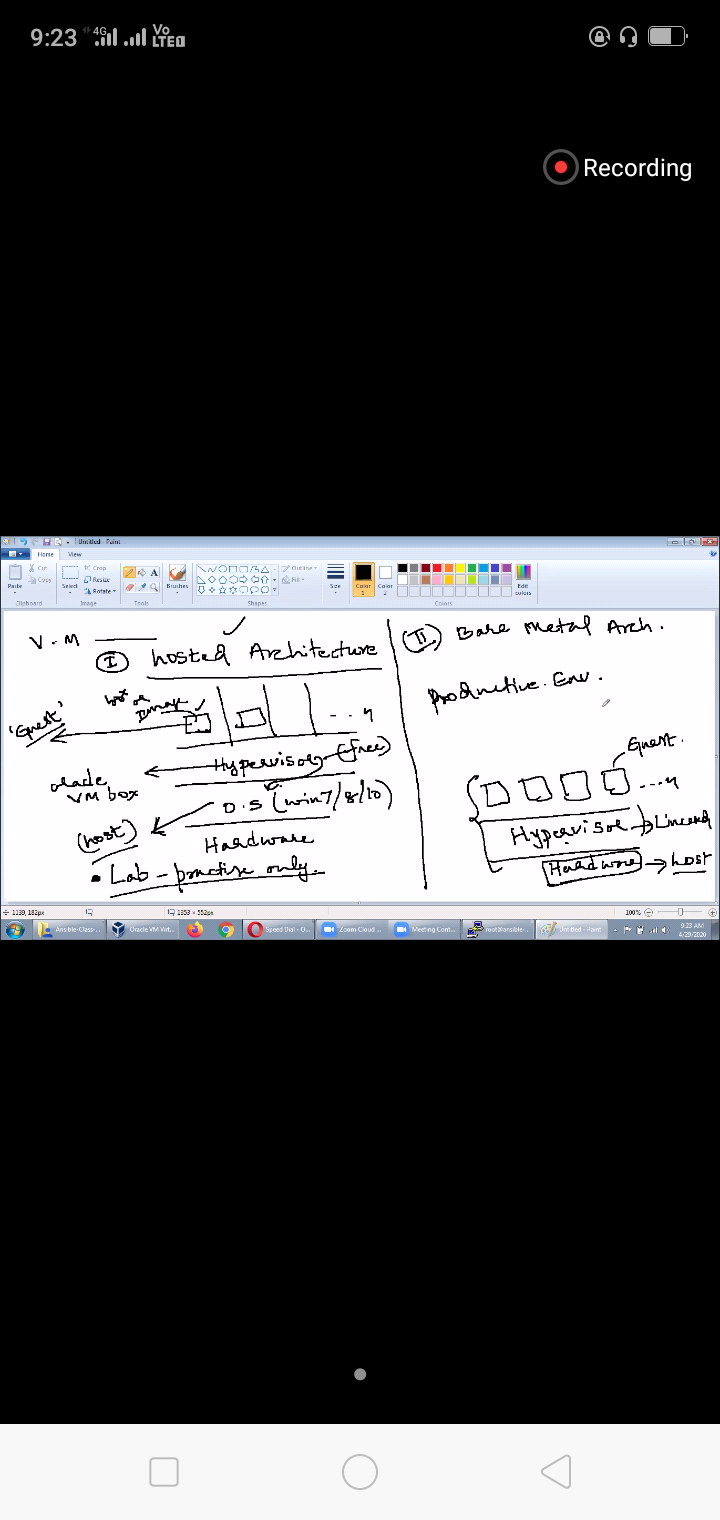 9:23 4G Vo LTE 1
Recording
Untitled - Paint
Home View
Paste Cut Copy Select Crop Resize Rotate A Brushes Outline Fill Size Color 1 Color 2 Edit colors
Clipboard Image Tools Shapes Colors
V.M
I hosted Architecture
Image
'Guest'
... n
Hypervisor (free)
VM box
O.S (win7/8/10)
(host)
Hardware
• Lab - practise only.
II Bare Metal Arch.
Productive. Env.
Guest.
... n
Hypervisor
Hardware → host
1139, 182px 1353 × 552px 100%
Ansible-Class-... Oracle VM Virt... Speed Dial - O... Zoom Cloud ... Meeting Cont... root@ansible-... Untitled - Paint 9:23 AM
4/29/2020